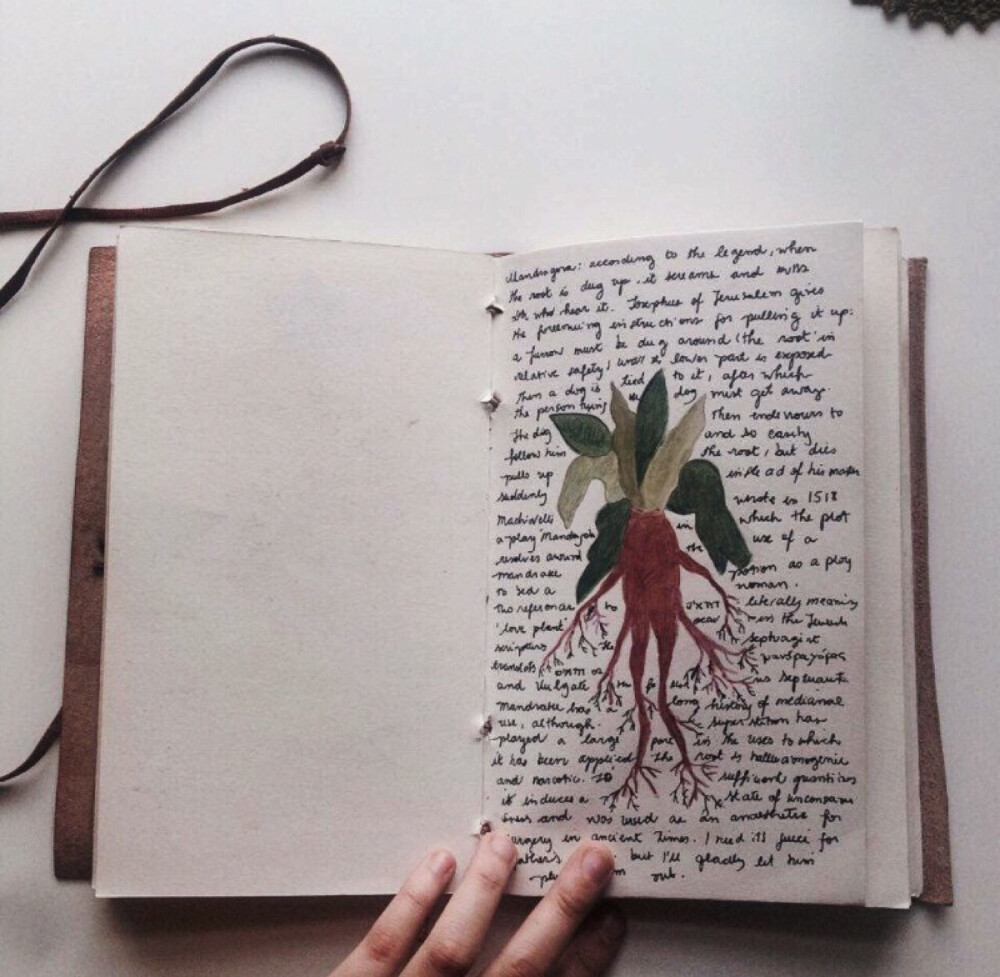 Mandragora: according to the legend, when
the root is dug up, it screams and kills
all who hear it. Josephus of Jerusalem gives
the following instructions for pulling it up:
a furrow must be dug around the root in
relative safety, until lower part is exposed
then a dog is tied to it, after which
the person tying the dog must get away.
The dog then endevours to
follow him and so easily
pulls up the root, but dies
suddenly instead of his master
Machiavelli wrote in 1518
a play Mandragola in which the plot
revolves around the use of a
mandrake potion as a ploy
to bed a woman.
The reference to literally meaning
'love plant' in the Jewish
scriptures the septuagint
translates μανδραγόρας
and Vulgate
mandrake has a long history of medicinal
use, although superstition has
played a large part in the uses to which
it has been applied. The root is hallucinogenic
and narcotic. In sufficient quantities
it induces a state of unconsciou
sness and was used as an anaesthetic for
surgery in ancient times. I need its juice for
father's but I'll gladly let him
out.